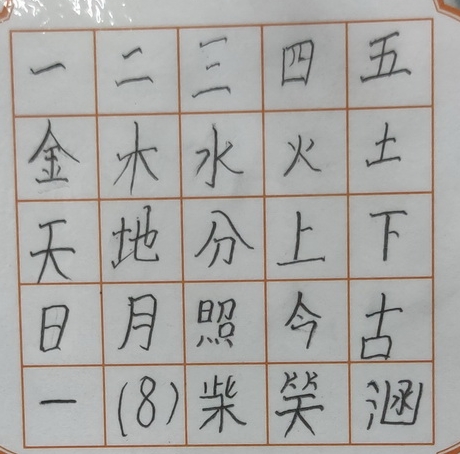 一二三四五
金木水火土
天地分上下
日月照今古
一(8)柴笑涵